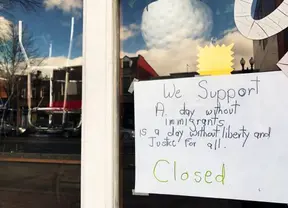 We Support
A day without
immigrants
is a day without liberty and
Justice for all.
Closed